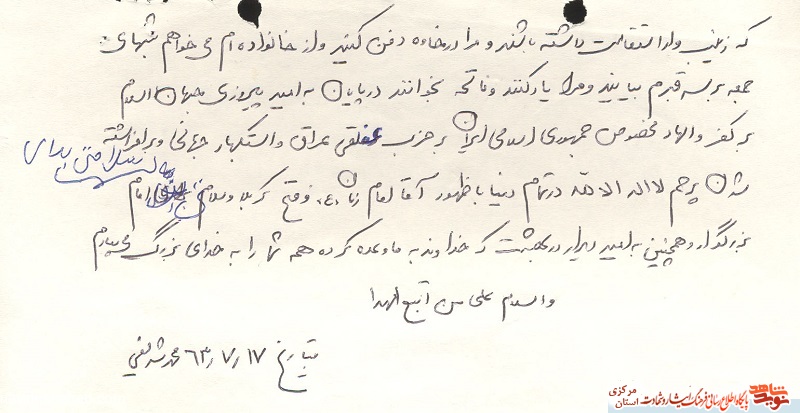 که زینب وار استقامت داشته باشند و مرا در خاوه دفن کنید و از خانواده ام می خواهم شبهای
جمعه بر سر قبرم بیایید و مرا یاد کنند و فاتحه بخوانند در پایان به امید پیروزی جهان اسلام
بر کفر و الحاد مخصوص جمهوری اسلامی ایران بر حزب عفلقی عراق و استکبار جهانی و برافراشته
شدن پرچم لااله الا الله در تمام دنیا با ظهور آقا امام زمان (ع) و فتح کربلا و سلام امام
سلامتی برای
بزرگوار و همچنین به امید دیدار در بهشت که خداوند به ما وعده کرده همه شما را به خدای بزرگ می سپارم
والسلام علی من اتبع الهدا
بتاریخ ۶۳٫۷٫۱۷ محمد شریفی
نوید شاهد
پایگاه اطلاع رسانی فرهنگ ایثار و شهادت
استان مرکزی